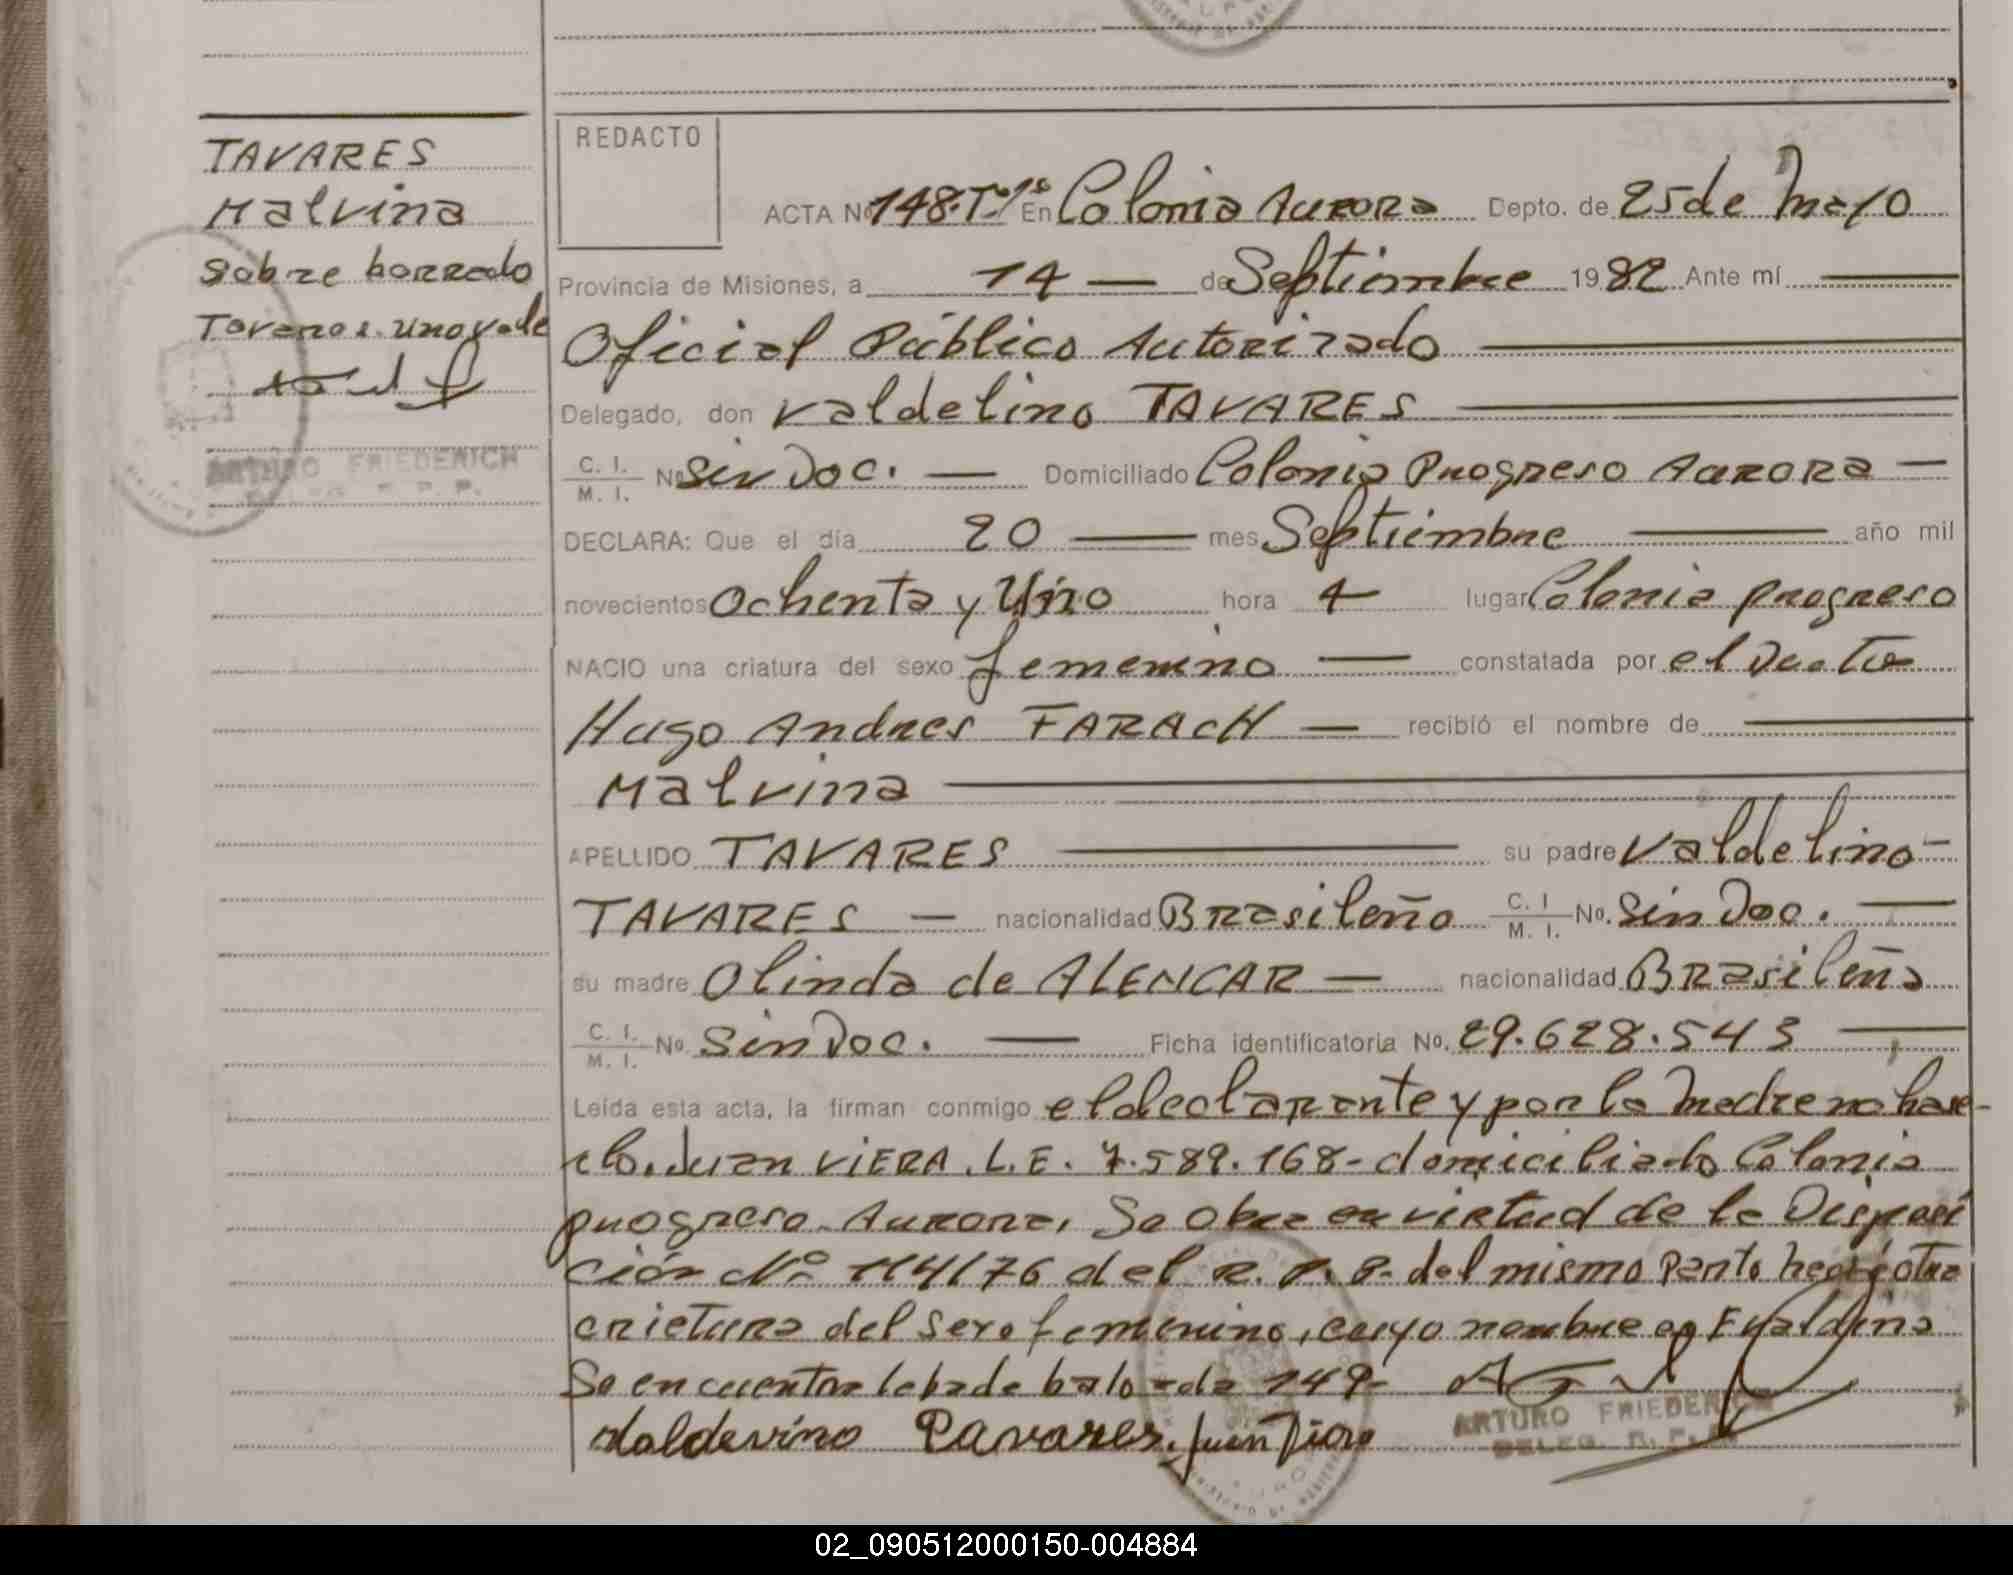 TAVARES
Malvina
Sobre borrado
Tavares. uno vale
ARTURO FRIEDERICH
DELEG. R. P. P.
REDACTO
ACTA Nº 148.Tº1º En Colonia Aurora Depto. de 25 de Mayo
Provincia de Misiones, a 14 — de Septiembre 1982 Ante mí
Oficial Público Autorizado
Delegado, don Valdelino TAVARES
C. I. / M. I. Nº Sin Doc. — Domiciliado Colonia Progreso Aurora —
DECLARA: Que el día 20 — mes Septiembre — año mil
novecientos Ochenta y Uno hora 4 lugar Colonia progreso
NACIO una criatura del sexo femenino — constatada por el Doctor
Hugo Andres FARACH — recibió el nombre de
Malvina
APELLIDO TAVARES — su padre Valdelino -
TAVARES — nacionalidad Brasileño C. I / M. I. No. Sin Doc. —
su madre Olinda de ALENCAR — nacionalidad Brasileña
C. I. / M. I. No. Sin Doc. — Ficha identificatoria No. 29.628.543 —
Leída esta acta, la firman conmigo el declarante y por la Madre no hacer-
lo. Juan VIERA. L.E. 7.589.168- domiciliado Colonia
progreso Aurora, Se obra en virtud de la Disposi
ción Nº 114/76 del R. P. P. del mismo Parto nació otra
criatura del Sexo femenino, cuyo nombre es Evaldina
Se encuentra labada bajo acta 149-
Valdevino Tavares. Juan Viera
ARTURO FRIEDERICH
DELEG. R. P. P.
02_090512000150-004884